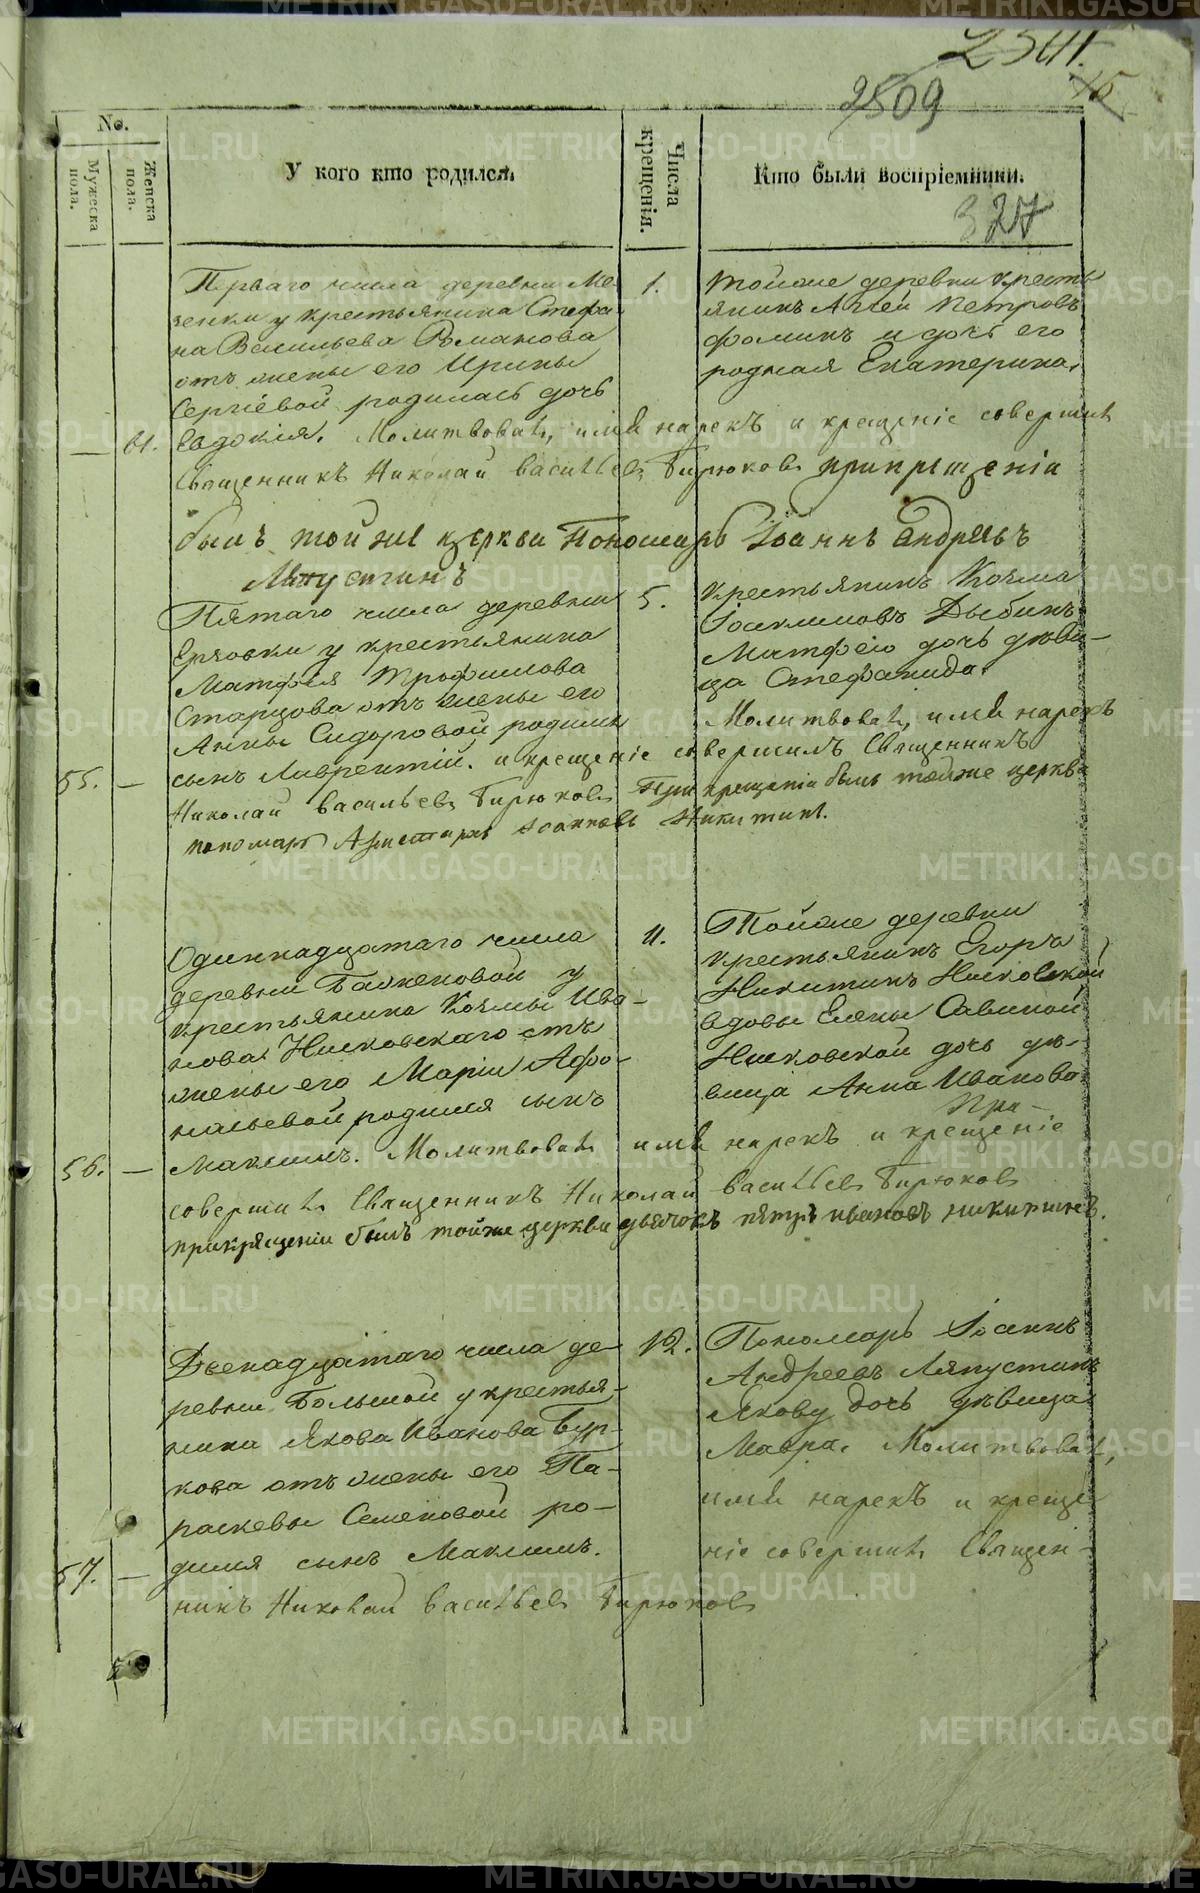 2509
327
No.
Мужеска пола.
Женска пола.
У кого кто родился.
Числа крещенія.
Кто были воспріемники.
Перваго числа деревни Ме-
зенки у крестьянина Стефа-
на Васильева Романова
отъ жены его Ирины
Сергіевой родилась дочь
Евдокія. Молитвовалъ, имя нарекъ и крещеніе совершилъ
Священникъ Николай Васильевъ Бирюковъ прикрещеніи
былъ тойже церкви Пономарь Іоаннъ Андреевъ
Ляпустинъ
1.
тойже деревни кресть
янинъ Аггей Петровъ
Фоминъ и дочь его
родная Екатерина.
Пятаго числа деревни
Ерзовки у крестьянина
Матфея Трофимова
Старцова отъ жены его
Анны Сидоровой родился
55. —
сынъ Лаврентій. и крещеніе совершилъ Священникъ
Николай Васильевъ Бирюковъ При крещеніи былъ тойже церкви
пономарь Аристархъ Іоанновъ Никитинъ.
5.
крестьянинъ Козма
Іоакимовъ Дыбинъ
Матфею дочь дѣви-
ца Стефанида.
Молитвовалъ, имя нарекъ
Одиннадцатаго числа
деревни Баженовой у
крестьянина Козмы Ива-
нова Нисковскаго отъ
жены его Маріи Афо-
насьевой родился сынъ
56. —
Максимъ. Молитвовалъ имя нарекъ и крещеніе
совершилъ Священникъ Николай Васильевъ Бирюковъ
прикрещеніи былъ тойже церкви дьячокъ пятръ ивановъ никитинъ.
11.
Тойже деревни
крестьянинъ Егоръ
Никитинъ Нисковской
вдовы Елены Савиной
Нисковской дочь дѣ-
вица Анна Иванова.
При-
Двенадцатаго числа де-
ревни Большой у крестья-
нина Якова Иванова Бур-
кова отъ жены его Па-
раскевы Семеновой ро-
57. —
дился сынъ Максимъ.
12.
Пономарь Іоаннъ
Андреевъ Ляпустинъ
Якову дочь дѣвица
Мавра. Молитвовалъ,
имя нарекъ и креще
ніе совершилъ Священ-
никъ Николай Васильевъ Бирюковъ
METRIKI.GASO-URAL.RU